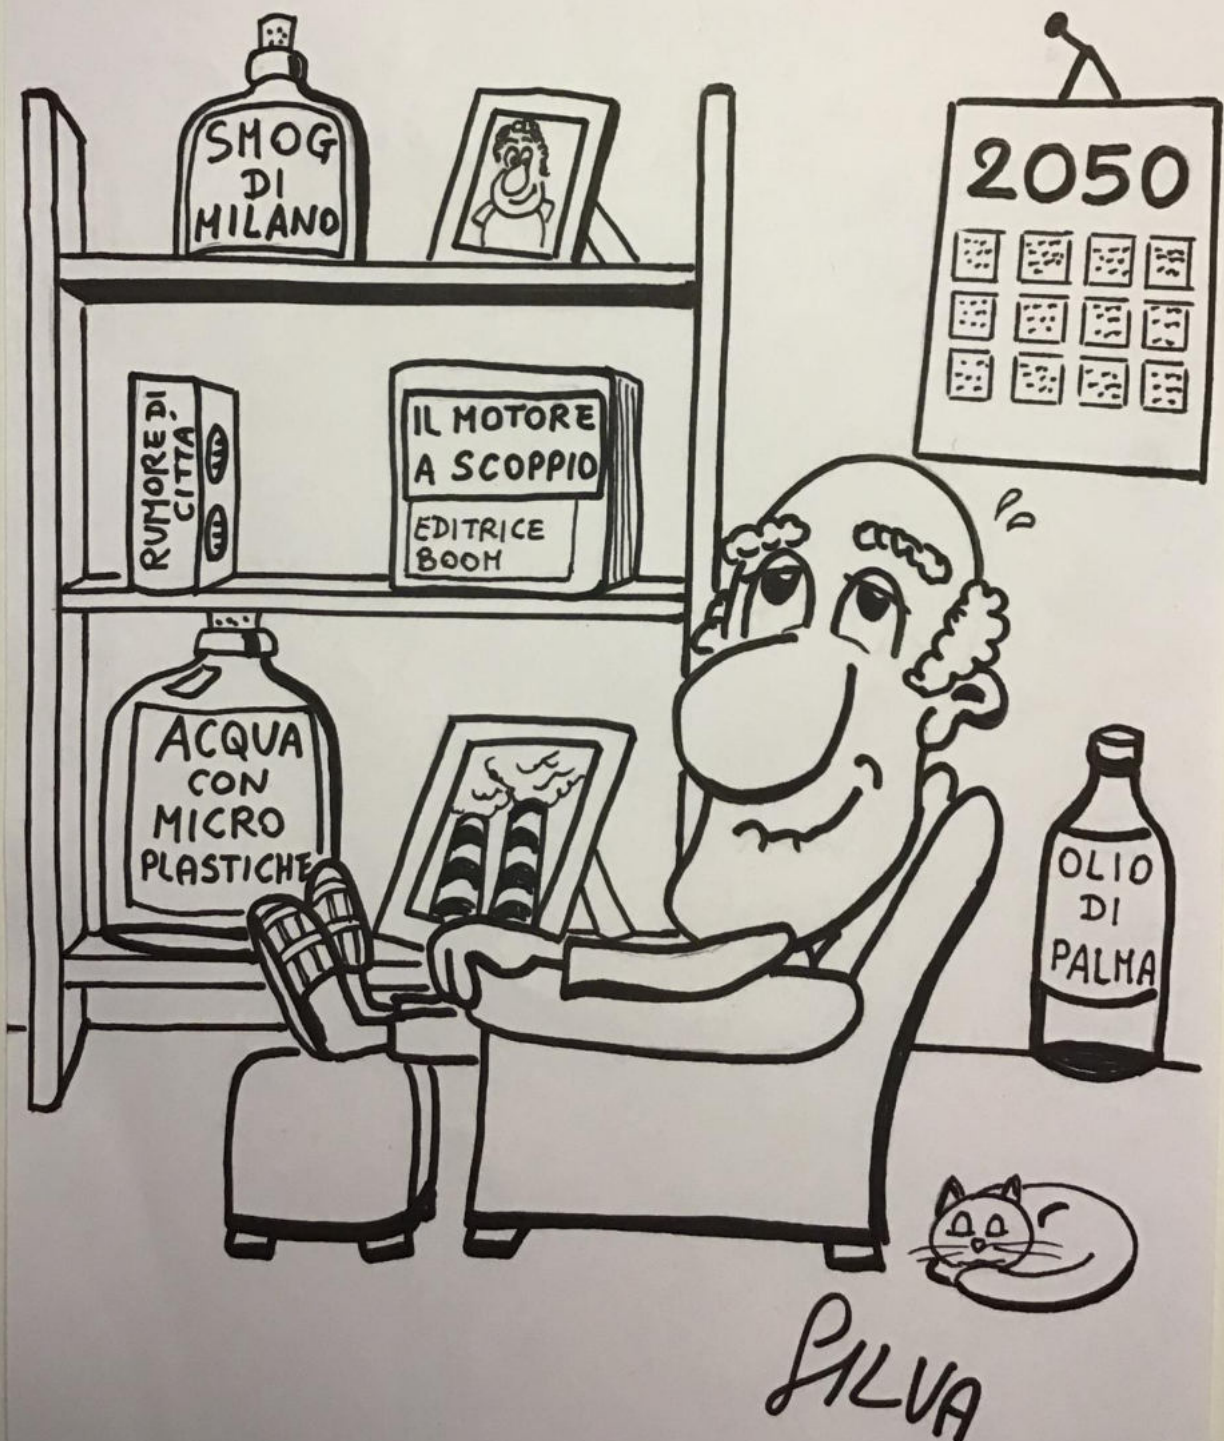 SMOG
DI
MILANO
2050
RUMORE DI
CITTÀ
IL MOTORE
A SCOPPIO
EDITRICE
BOOM
ACQUA
CON
MICRO
PLASTICHE
OLIO
DI
PALMA
SILVA